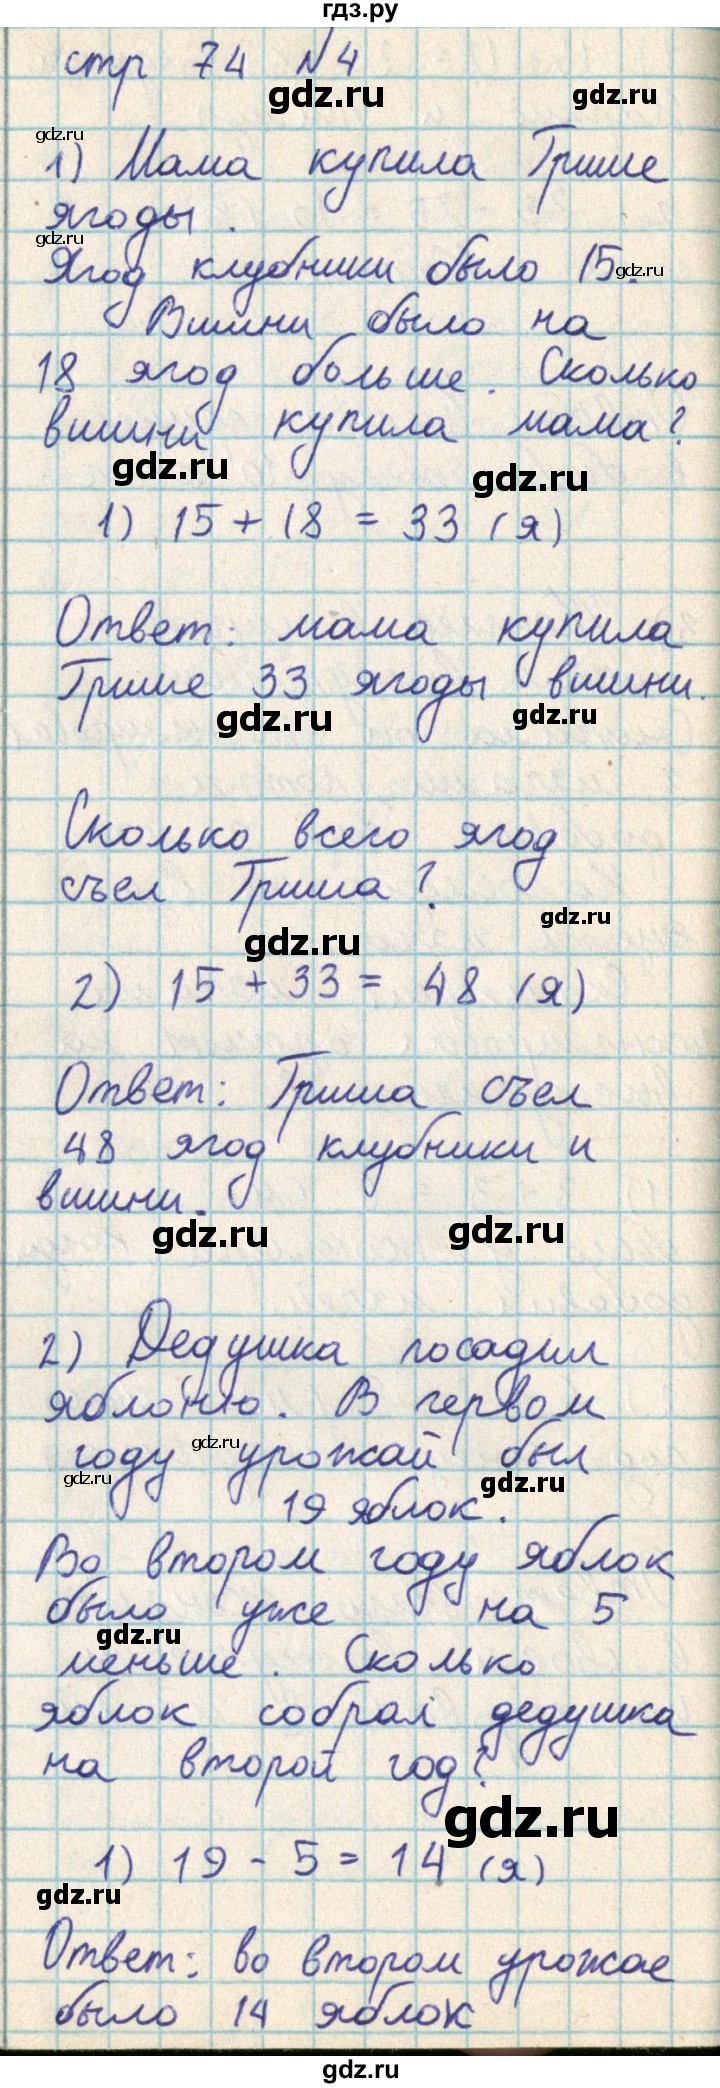 гдз.ру
стр 74 №4
gdz.ru
gdz.ru
gdz.ru
1) Мама купила Грише
ягоды.
gdz.ru
Ягод клубники было 15.
gdz.ru
Вишни было на
18 ягод больше. Сколько
вишни купила мама?
gdz.ru
gdz.ru
1) 15 + 18 = 33 (я)
Ответ: мама купила
Грише 33 ягоды вишни.
gdz.ru
gdz.ru
Сколько всего ягод
съел Гриша?
gdz.ru
gdz.ru
2) 15 + 33 = 48 (я)
Ответ: Гриша съел
48 ягод клубники и
вишни.
gdz.ru
gdz.ru
2) Дедушка посадил
яблоню. В первом
году урожай был
gdz.ru
gdz.ru
gdz.ru
19 яблок.
Во втором году яблок
было уже на 5
gdz.ru
меньше. Сколько
яблок собрал дедушка
на второй год?
gdz.ru
1) 19 - 5 = 14 (я)
gdz.ru
Ответ: во втором урожае
было 14 яблок
gdz.ru